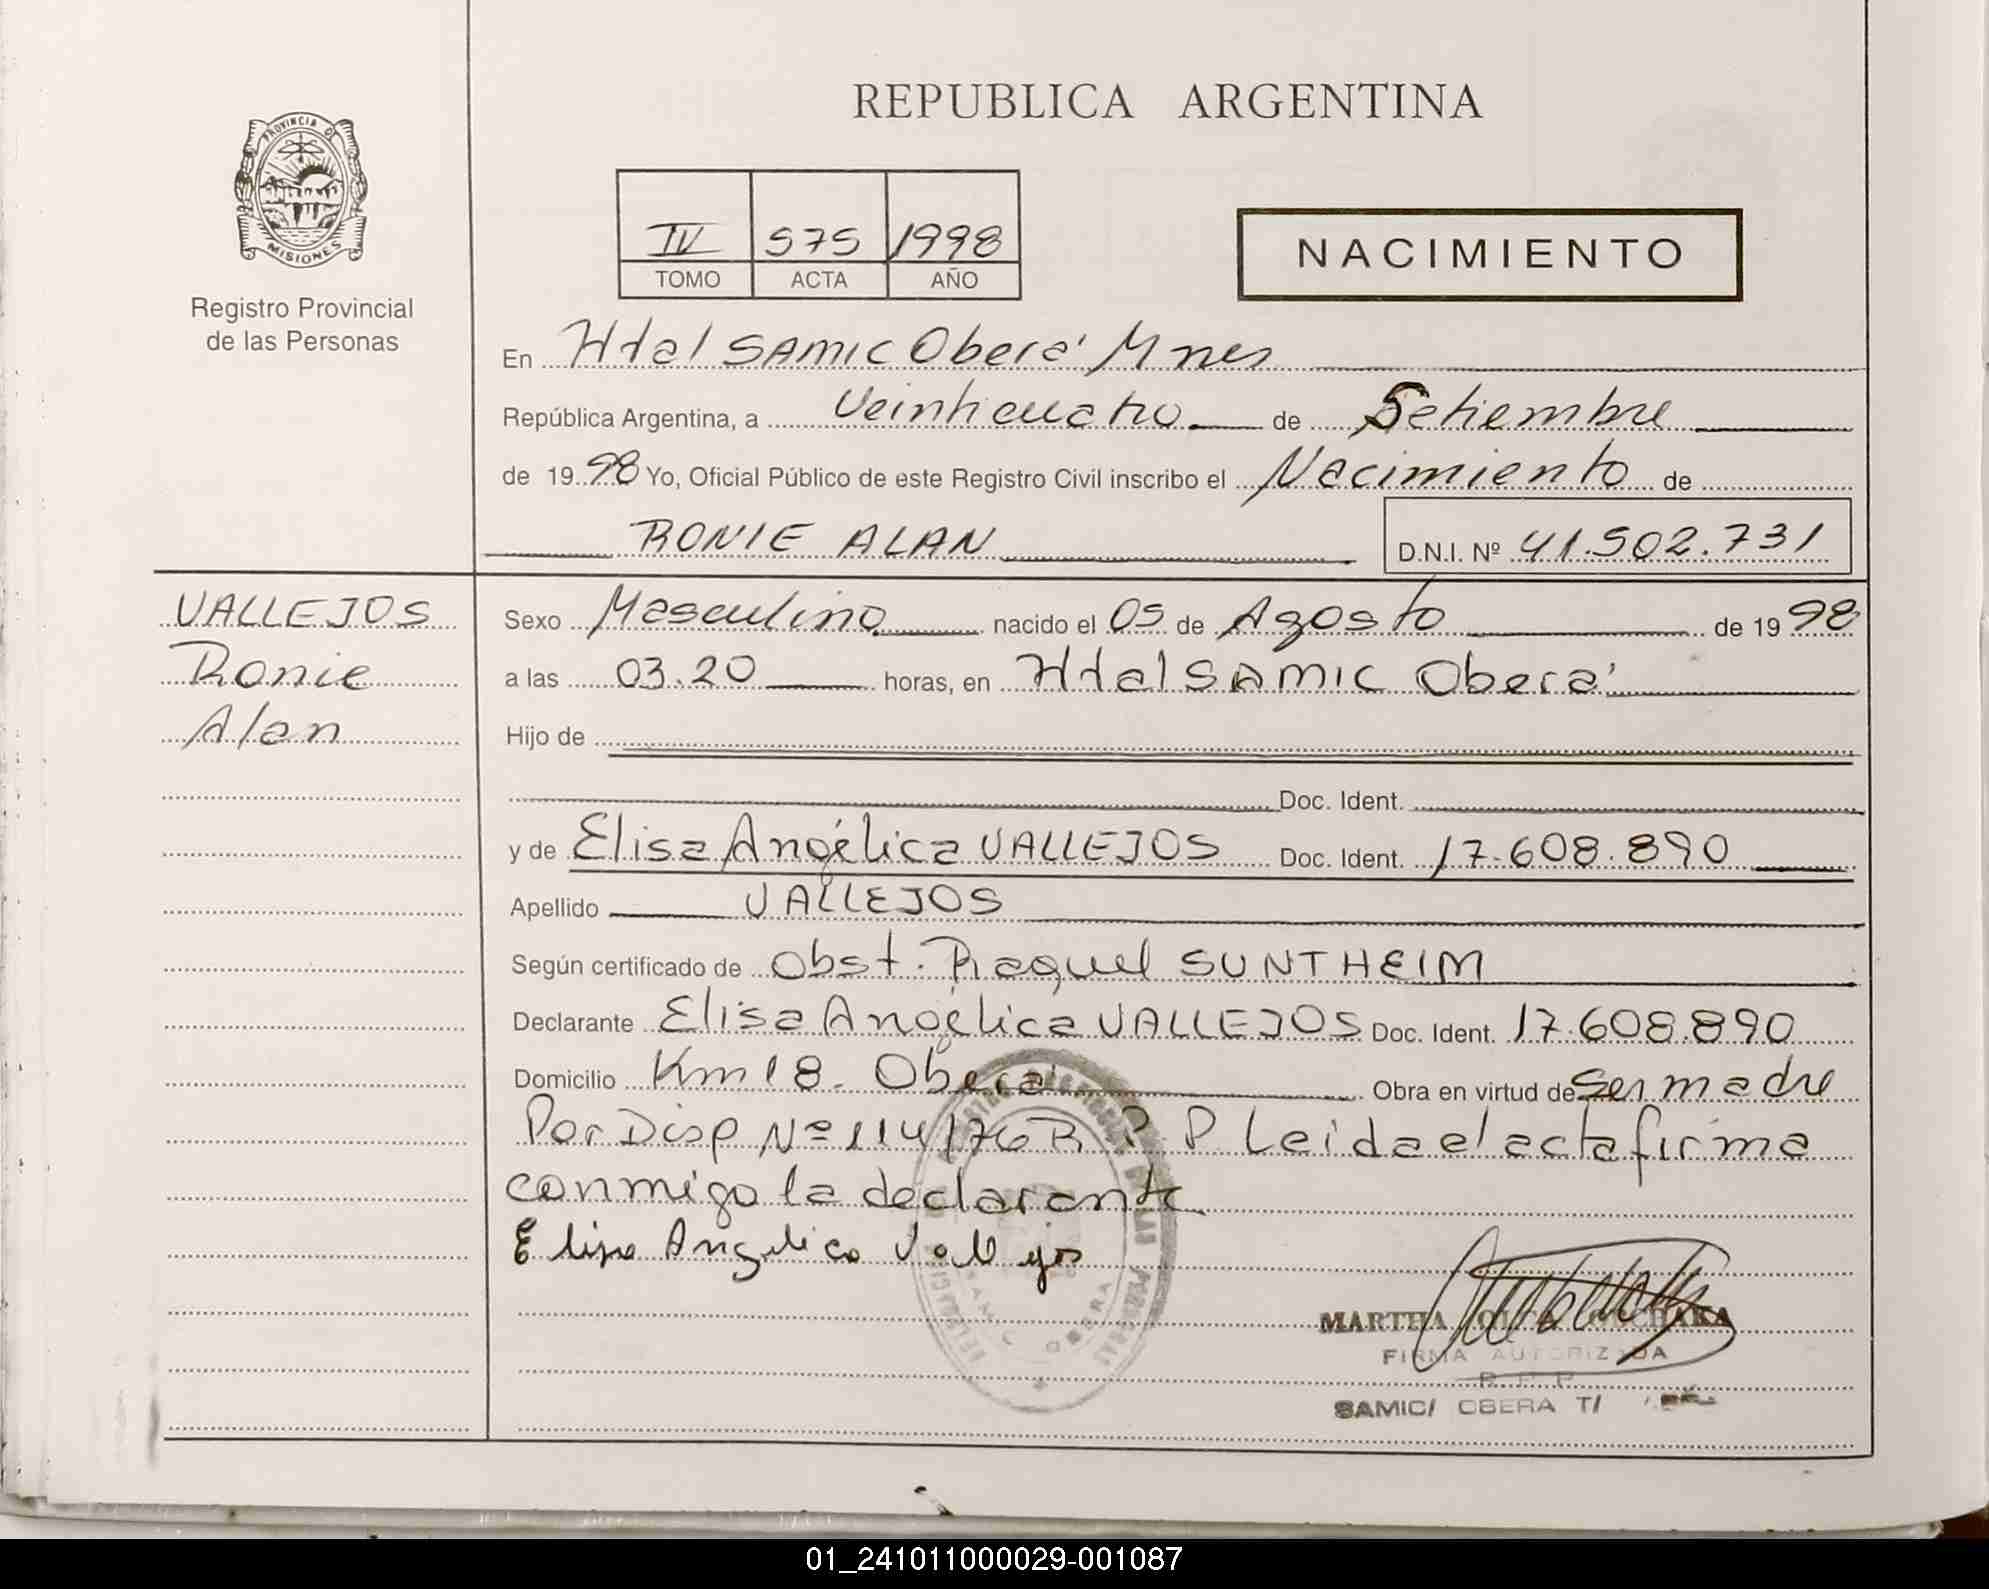 REPUBLICA ARGENTINA
PROVINCIA DE
MISIONES
Registro Provincial
de las Personas
IV 575 1998
TOMO ACTA AÑO
NACIMIENTO
En Htal SAMIC Oberá Mnes
República Argentina, a Veinticuatro de Setiembre
de 1998 Yo, Oficial Público de este Registro Civil inscribo el Nacimiento de
RONIE ALAN D.N.I. Nº 41.502.731
VALLEJOS
Ronie
Alan
Sexo Masculino nacido el 05 de Agosto de 1998
a las 03.20 horas, en Htal SAMIC Oberá
Hijo de
Doc. Ident.
y de Elisa Angélica VALLEJOS Doc. Ident. 17.608.890
Apellido VALLEJOS
Según certificado de Obst. Raquel SUNTHEIM
Declarante Elisa Angélica VALLEJOS Doc. Ident. 17.608.890
Domicilio Km 18. Oberá Obra en virtud de ser madre
Por Disp Nº 114/76 R. P. P Leida el acta firma
conmigo la declarante
Elisa Angelica Vallejos
MARTHA OLGA
FIRMA AUTORIZADA
R P P
SAMIC/ OBERA T/
SAMIC OBERA
01_241011000029-001087